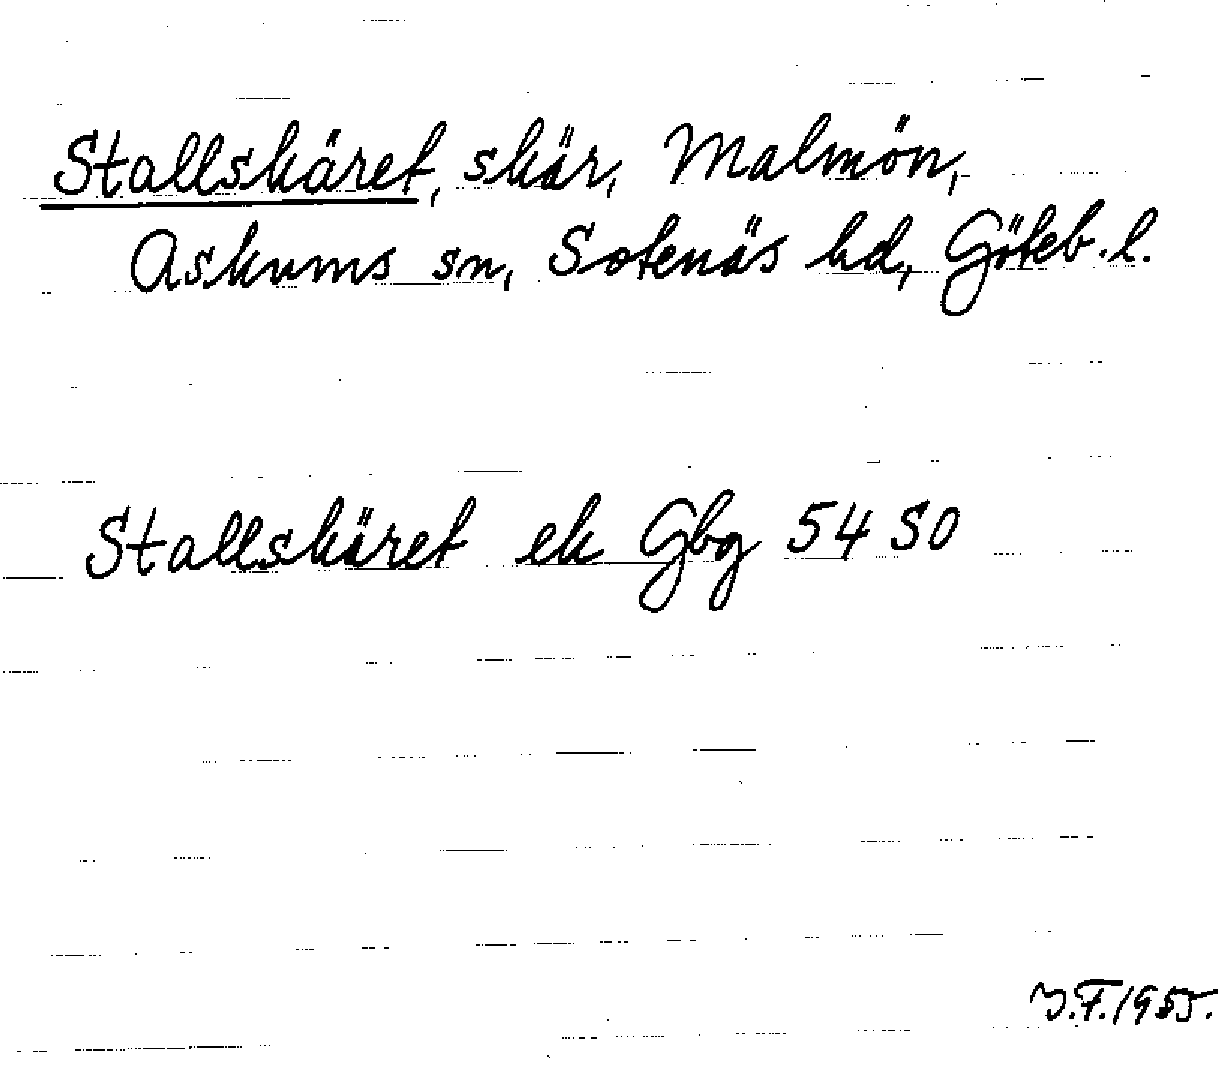 Stallskäret, skär, Malmön,
Askums sn, Sotenäs hd, Göteb. l.
Stallskäret ek Gbg 54 SO
J.F. 1955.